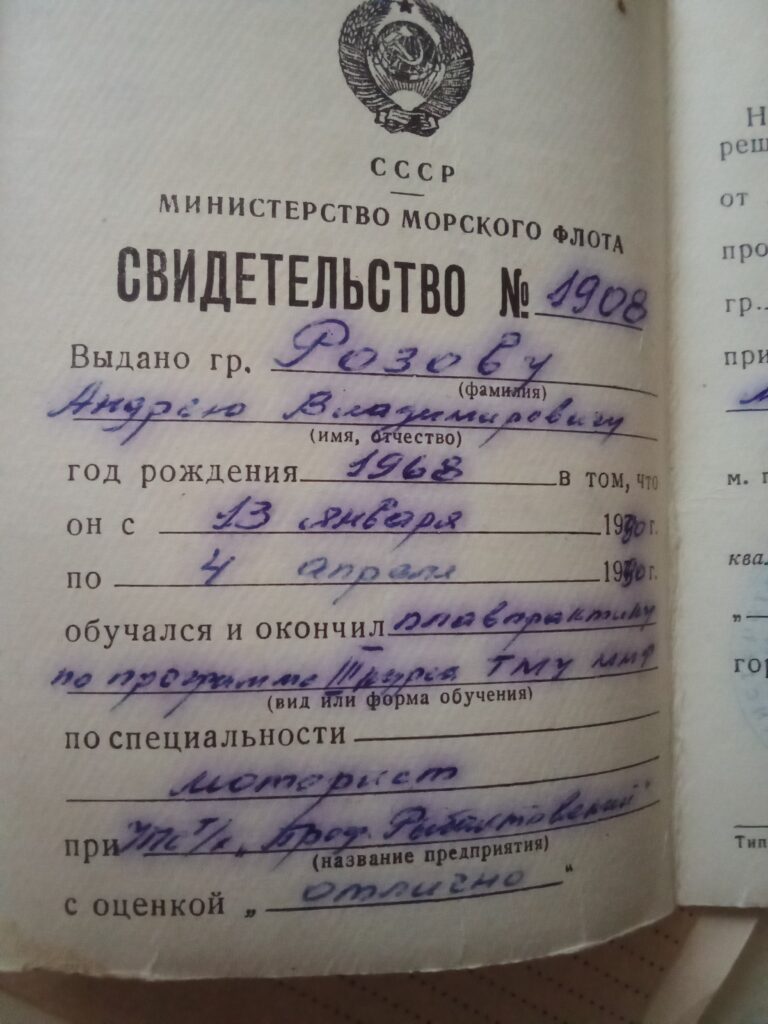 СССР
МИНИСТЕРСТВО МОРСКОГО ФЛОТА
СВИДЕТЕЛЬСТВО № 1908
Выдано гр. Розову
(фамилия)
Андрею Владимировичу
(имя, отчество)
год рождения 1968 в том, что
он с 13 января 1990 г.
по 4 апреля 1990 г.
обучался и окончил плавпрактику
по программе III курса ТМУ ММФ
(вид или форма обучения)
по специальности
моторист
при УПС т/х „Проф. Рыбалтовский"
(название предприятия)
с оценкой „ отлично "
Н
реш
от
про
гр..
при
м. п
ква
„
гор
Тип